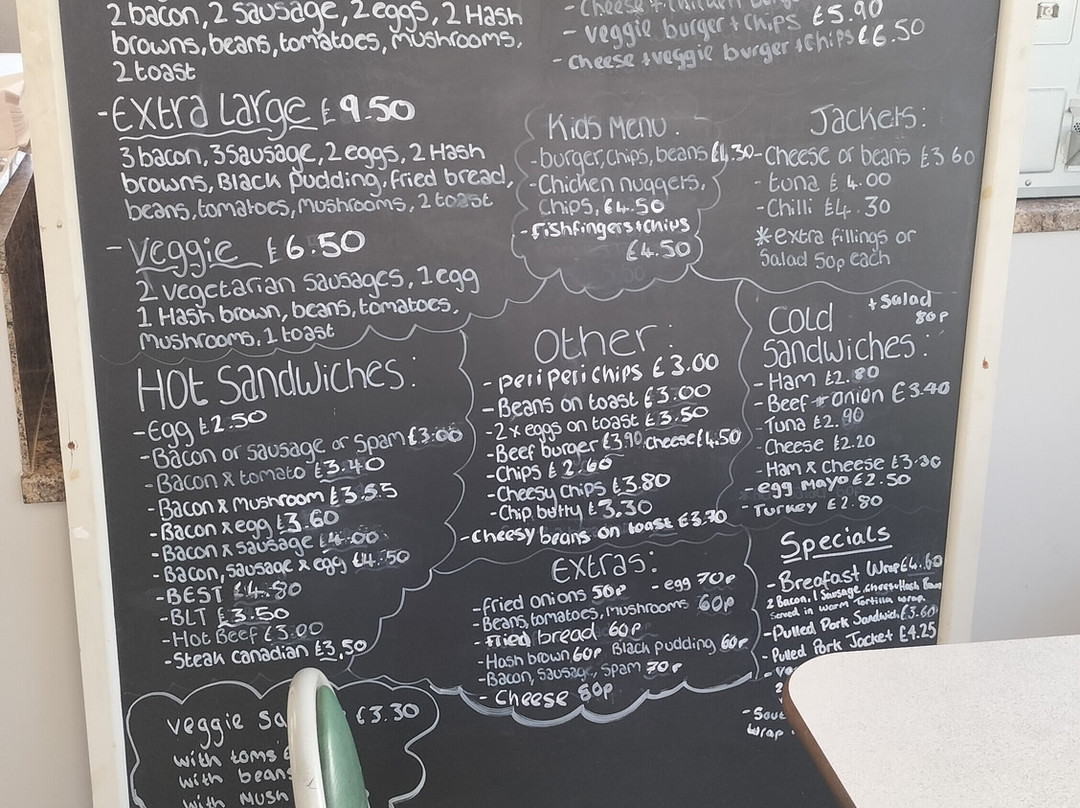 2 bacon, 2 sausage, 2 eggs, 2 Hash
browns, beans, tomatoes, mushrooms,
2 toast
- Extra Large £9.50
3 bacon, 3 sausage, 2 eggs, 2 Hash
browns, Black pudding, fried bread,
beans, tomatoes, mushrooms, 2 toast
- Veggie £6.50
2 vegetarian sausages, 1 egg
1 Hash brown, beans, tomatoes,
mushrooms, 1 toast
- Cheese + chicken
- veggie burger + chips £5.90
- cheese + veggie burger + chips £6.50
Kids Menu.
- burger, chips, beans £4.30
- Chicken nuggets,
Chips, £4.50
- fishfingers + chips
£4.50
Jackets:
- Cheese or beans £3.60
- tuna £4.00
- Chilli £4.30
*extra fillings or
Salad 50p each
HOT Sandwiches:
- Egg £2.50
- Bacon or sausage or Spam £3.00
- Bacon & tomato £3.40
- Bacon & Mushroom £3.55
- Bacon & egg £3.60
- Bacon & sausage £4.00
- Bacon, sausage & egg £4.50
- BEST £4.80
- BLT £3.50
- Hot Beef £3.00
- Steak canadian £3.50
Other:
- peri peri chips £3.00
- Beans on toast £3.00
- 2 x eggs on toast £3.50
- Beef burger £3.90 cheese £4.50
- Chips £2.60
- Cheesy chips £3.80
- Chip butty £3.30
- cheesy beans on toast £3.70
COLD + Salad
80p
Sandwiches:
- Ham £2.80
- Beef + onion £3.40
- Tuna £2.90
- Cheese £2.20
- Ham & cheese £3.30
- egg mayo £2.50
- Turkey £2.80
Extras:
- fried onions 50p - egg 70p
- Beans, tomatoes, mushrooms 60p
- fried bread 60p
- Hash brown 60p Black pudding 60p
- Bacon, sausage, Spam 70p
- Cheese 80p
Specials
- Breafast Wrap £4.60
2 Bacon, 1 Sausage, cheese + Hash Brown
Served in warm Tortilla wrap
- Pulled Pork Sandwich £3.60
- Pulled Pork Jacket £4.25
2
wrap
veggie £3.30
with toms
with beans
with mush